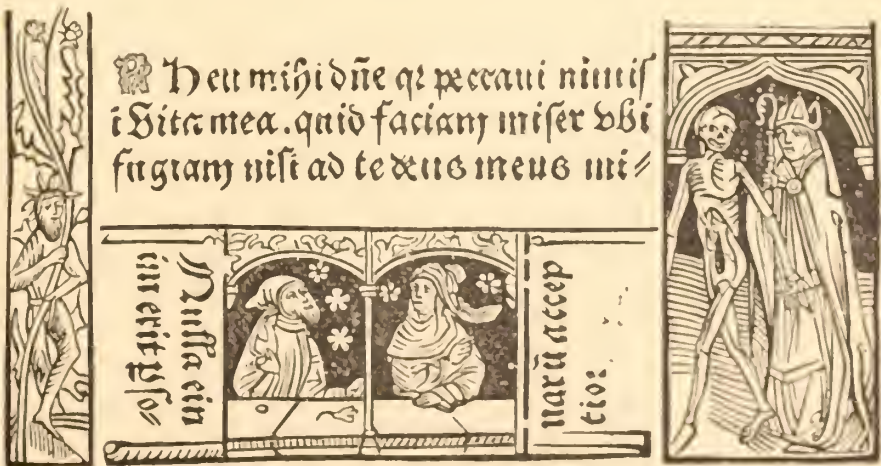 ℟ Heu mihi dñe qꝛ peccaui nimis
ĩ Vita mea. quid faciam miser vbi
fugiam nisi ad te deus meus mi⸗
Nulla ein
im erit ꝑso⸗
narũ accep
tio: